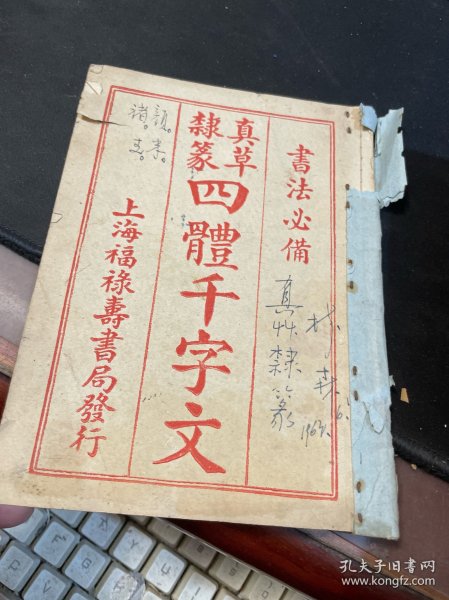 書法必備
真草
隸篆
四體千字文
上海福祿壽書局發行
真艸隸篆
顏。李。
褚。
孔夫子旧书网
www.kongfz.com